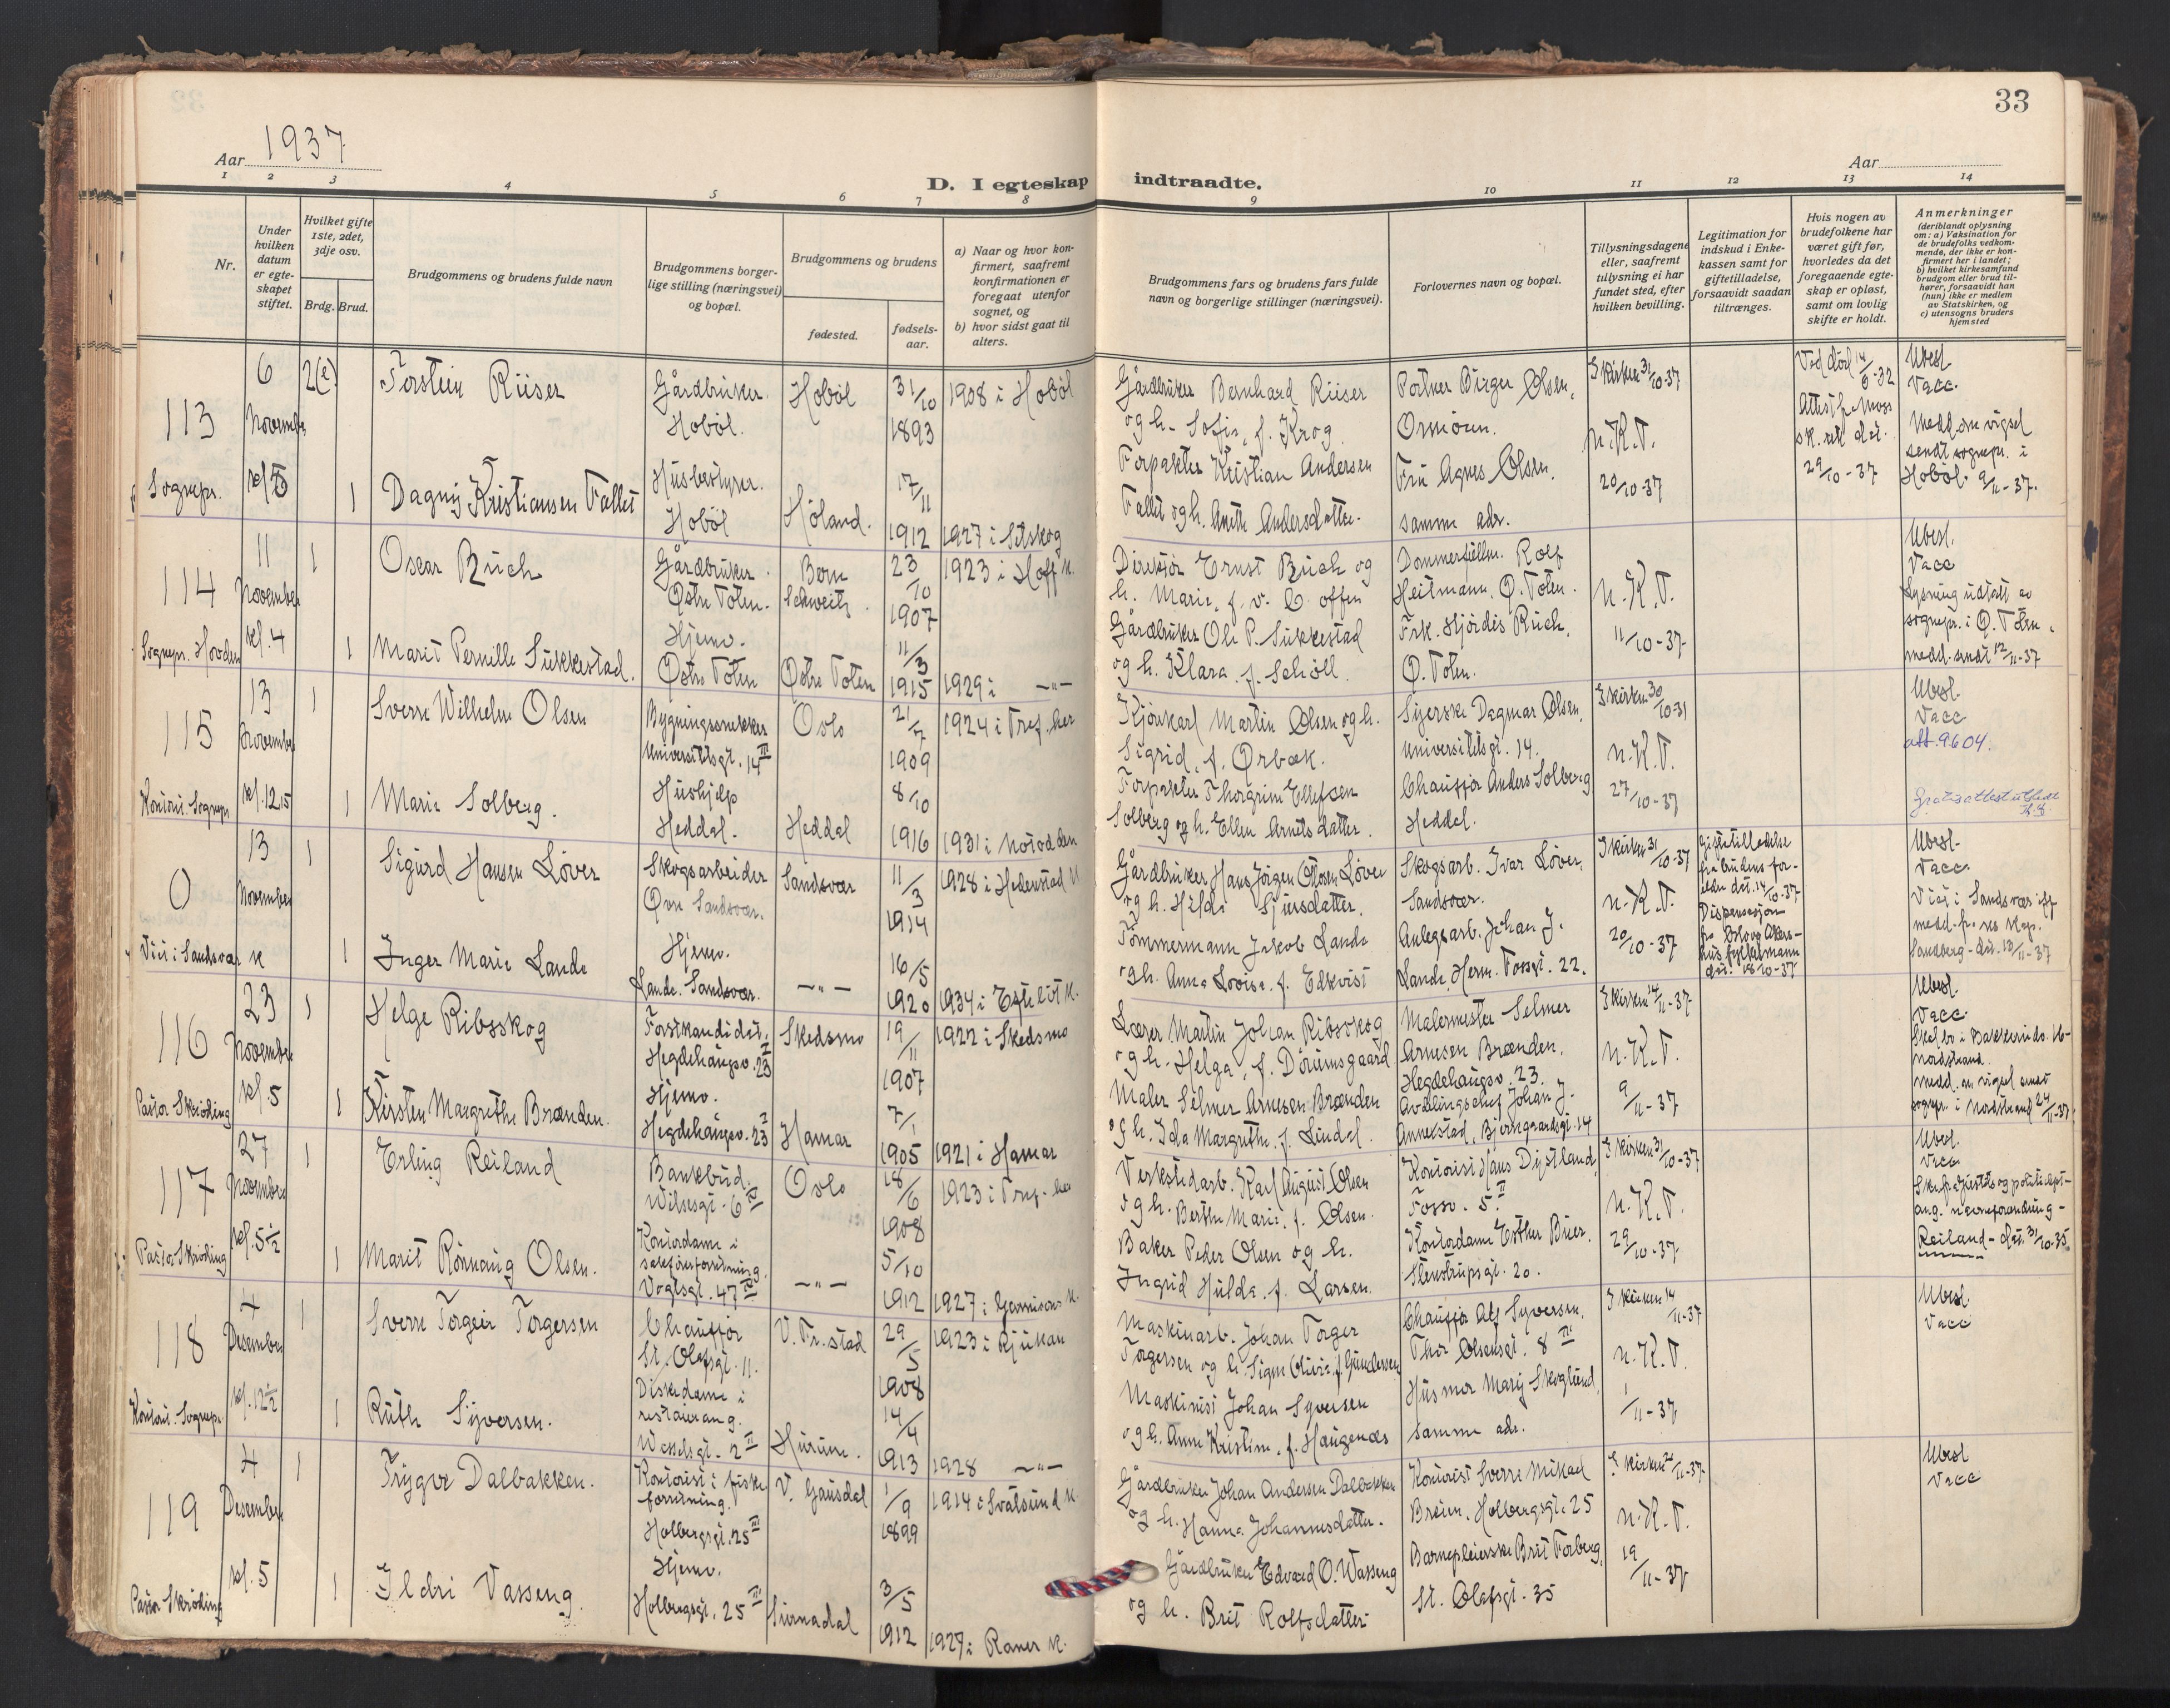 33
Aar 1937
Aar
D. I egteskap indtraadte.
1 2 3 4 5 6 7 8 9 10 11 12 13 14
Nr.
Under hvilken datum er egteskapet stiftet.
Hvilket gifte 1ste, 2det, 3dje osv.
Brdg. Brud.
Brudgommens og brudens fulde navn
Brudgommens borgerlige stilling (næringsvei) og bopæl.
Brudgommens og brudens
fødested.
fødselsaar.
a) Naar og hvor konfirmert, saafremt konfirmationen er foregaat utenfor sognet, og
b) hvor sidst gaat til alters.
Brudgommens fars og brudens fars fulde navn og borgerlige stillinger (næringsvei).
Forlovernes navn og bopæl.
Tillysningsdagene eller, saafremt tillysning ei har fundet sted, efter hvilken bevilling.
Legitimation for indskud i Enkekassen samt for giftetilladelse, forsaavidt saadan tiltrænges.
Hvis nogen av brudefolkene har været gift før, hvorledes da det foregaaende egteskap er opløst, samt om lovlig skifte er holdt.
Anmerkninger (deriblandt oplysning om: a) Vaksination for de brudefolks vedkommende, der ikke er konfirmert her i landet; b) hvilket kirkesamfund brudgom eller brud tilhører, forsaavidt han (hun) ikke er medlem av Statskirken, og c) utensogns bruders hjemsted
113
6 November kl. 5
Sognepr.
2(e)
Torstein Riiser
Gårdbruker. Hobøl.
Hobøl
31/10 1893
1908 i Hobøl
Gårdbruker Bernhard Riiser
og h. Sofie, f. Krog.
Portner Birger Olsen,
I kirken 31/10-37
n.K.T.
20/10-37
Ved død 14/6-32
Attest fra Moss
sk.rett dat.
29/10-37
Ubesl.
Vacc.
Medd. om vigsel
sendt sognepr. i
Hobøl 9/11-37.
1
Dagny Kristiansen Fallet
Husbestyrer. Hobøl
Høland.
17/11 1912
1927 i Setskog
Forpakter Kristian Andersen
Fallet og h. Anette Andersdatter.
Fru Agnes Olsen.
samme adr.
114
11 November kl. 4
Sognepr. Hovden
1
Oscar Rüch
Gårdbruker. Østre Toten.
Bern Schweitz.
23/10 1907
1923 i Hoff k.
Direktør Ernst Rüch og
h. Marie, f. v.
Dommerfullm. Rolf
Heitmann, Ø. Toten.
n.K.T.
11/10-37
Ubesl.
Vacc
Lysning utført av
sognepr. i Ø. Toten.
medd. sendt 12/11-37
1
Marit Pernille Sukkestad.
Hjemv. Østre Toten
Østre Toten
11/3 1915
1929 i —"—
Gårdbruker Ole P. Sukkestad
og h. Klara, f. Schjöll.
Frk. Hjördis Rüch,
Ø. Toten.
115
13 November kl. 12 15
Kontoret. Sognepr.
1
Sverre Wilhelm Olsen
Bygningssnekker
Universitetsgt. 14 III
Oslo
21/7 1909
1924 i Tref. her
Kjørekarl Martin Olsen og h.
Sigrid, f. Ørbæk.
Syerske Dagmar Olsen,
Universitetsgt. 14.
I kirken 30/10-31
n.K.T.
27/10-37
Ubesl.
Vacc
att. 9604.
1
Marie Solberg.
Hushjelp Heddal.
Heddal
8/10 1916
1931 i Notodden
Forpakter Thorgrim Ellefsen
Solberg og h. Ellen Arnetsdatter.
Chauffør Anders Solberg
Heddal.
0
13 November
Viet i Sandsvær k
1
Sigurd Hansen Løver
Skogsarbeider
Øvre Sandsvær.
Sandsvær
11/3 1914
1928 i Hedenstad k
Gårdbruker Hans Jörgen Olsen Løver
og h. Hilda Sjursdatter.
Skogsarb. Ivar Løver,
Sandsvær.
I kirken 31/10-37
n.K.T.
20/10-37
Giftetilladelse
fra brudens for-
eldre dat. 14/10-37
Dispensasjon
fra Oslo og Akers-
hus fylkesmann
dat. 18/10-37
Ubesl.
Vacc.
Viet i Sandsvær iflg
medd. fra res. kap.
Sandberg - dat. 18/11-37
1
Inger Marie Lande
Hjemv.
Lande. Sandsvær.
—"—
16/5 1920
1934 i Efteløt k.
Tømmermann Jakob Lande
og h. Anna Lovise, f. Edkvist
Anlegsarb. Johan J.
Lande, Herm. Fossgt. 22.
116
23 November kl. 5
Pastor Skrøding
1
Helge Ribsskog
Forstkandidat.
Hegdehaugsv. 23 I
Skedsmo
19/11 1907
1922 i Skedsmo
Lærer Martin Johan Ribsskog
og h. Helga, f. Dörumsgaard
Malermester Selmer
Arnesen Brænden,
Hegdehaugsv. 23.
I kirken 14/11-37
n.K.T.
9/11-37
Ubesl.
Vacc.
Skal bo i
Nordstrand.
medd. om vigsel sendt
sognepr. i Nordstrand 24/11-37.
1
Kirsten Margrethe Brænden.
Hjemv.
Hegdehaugsv. 23 I
Hamar
7/1 1905
1921 i Hamar
Maler Selmer Arnesen Brænden
og h. Ida Margrethe, f. Lindal.
Avdelingschef Johan J.
Annexstad, Bjerregaardsgt. 14
117
27 November kl. 5 1/2
Pastor Skrøding
1
Erling Reiland
Bankbud.
Wilsesgt. 6 IV
Oslo
18/6 1908
1923 i Tref. her
Verkstedarb. Karl August Olsen
og h. Berthe Marie, f. Olsen.
Kontorist Hans Dystland,
Fossv. 5 II
I kirken 31/10-37
n.K.T.
29/10-37
Ubesl.
Vacc
Skr. fra Justits og politidept.
ang. navneforandring -
Reiland - dat. 31/10-35
1
Marit Rönnaug Olsen.
Kontordame i
sakførerforretning.
Vogtsgt. 47 IV
—"—
5/10 1912
1927 i Garnisons k.
Baker Peder Olsen og h.
Ingrid Hulda, f. Larsen.
Kontordame Esther Buer.
Stenstrupsgt. 20.
118
4 Desember kl. 12 1/2
Kontoret. Sognepr.
1
Sverre Torgeir Torgersen
Chauffør
St. Olafsgt. 11.
V. Fr.stad
29/5 1908
1923 i Rjukan
Maskinarb. Johan Torger
Torgersen og h. Signe Olivia, f. Gundersen
Chauffør Alf Syversen,
Thor Olsensgt. 8 III
I kirken 14/11-37
n.K.T.
1/11-37
Ubesl.
Vacc
1
Ruth Syversen.
Diskedame i
restaurang.
Wesselsgt. 2 II
Hurum.
14/4 1913
1928 —"—
Maskinist Johan Syversen
og h. Anne Kristine, f. Haugenæs
Husmor Mary Skoglund,
samme adr.
119
4 Desember kl. 5
Pastor Skrøding
1
Trygve Dalbakken.
Kontorist i fiske
forretning.
Holbergsgt. 25 III
V. Gausdal
1/9 1899
1914 i Svatsum k.
Gårdbruker Johan Andersen Dalbakken
og h. Hanna Johannesdatter.
Kontorist Sverre Mikael
Breien, Holbergsgt. 25
I kirken 21/11-37
n.K.T.
19/11-37
Ubesl
Vacc
1
Ildri Vasseng
Hjemv.
Holbergsgt. 25 III
Surnadal
3/5 1912
1927 i Ranes k.
Gårdbruker Edvard O. Wasseng
og h. Brit Rolfsdatter
Barnepleierske Brit Forberg,
St. Olafsgt. 35